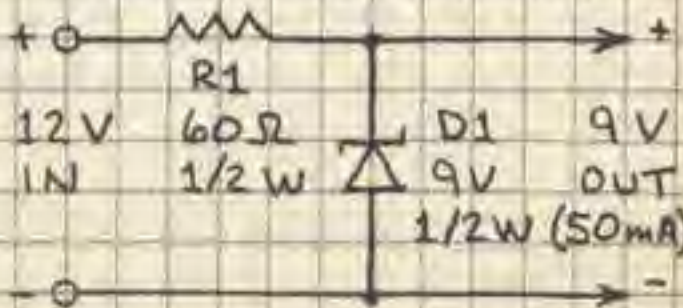 + +
R1
12V 60Ω D1 9V
IN 1/2W 9V OUT
1/2W (50mA)
- -